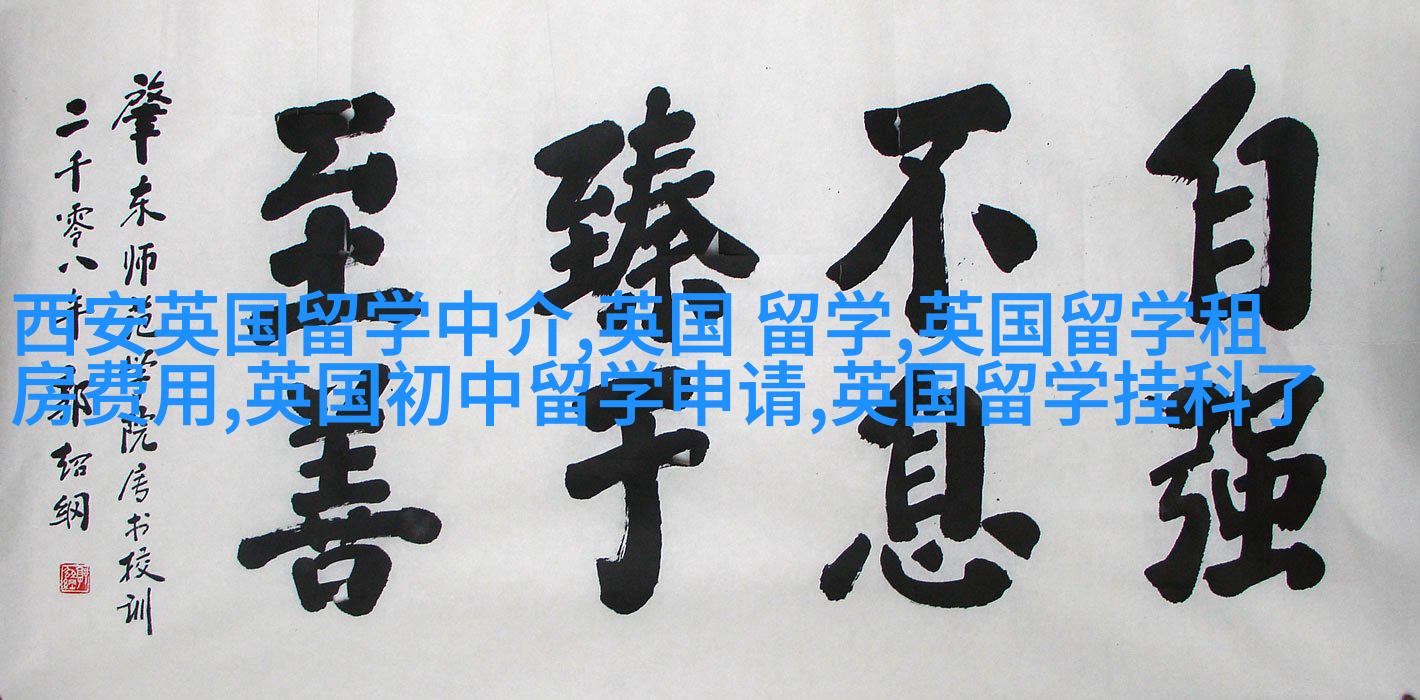 自强
不息
臻于
至善
肇东师范学院属书校训
二千零八年郭绍纲
西安英国留学中介,英国 留学,英国留学租
房费用,英国初中留学申请,英国留学挂科了